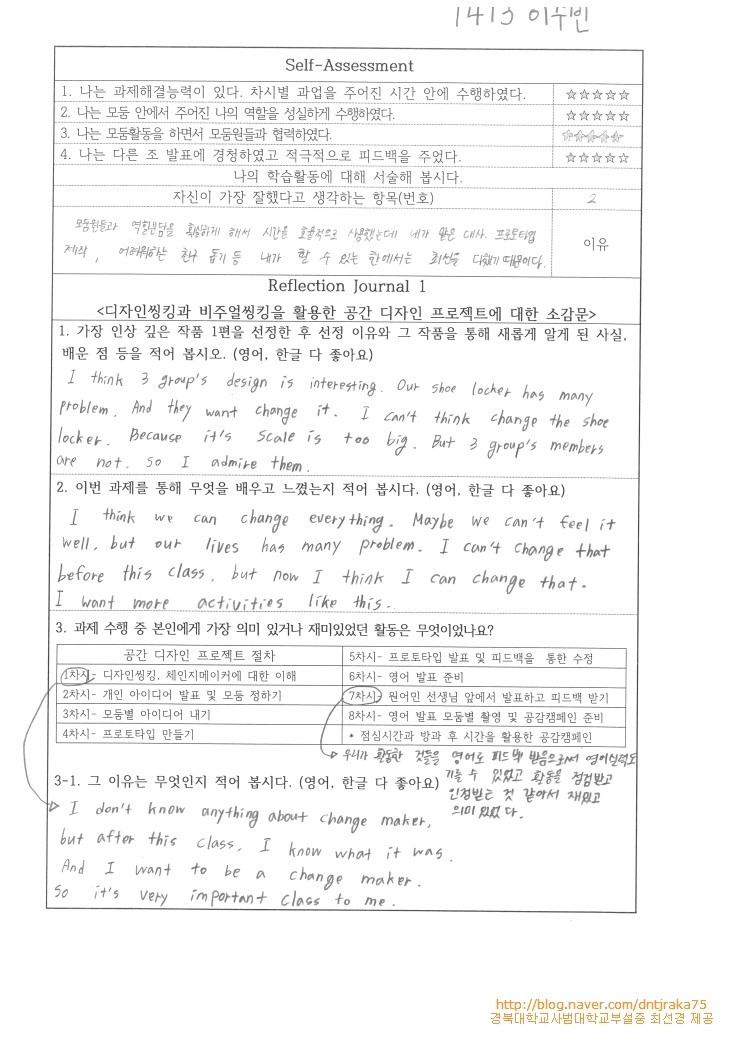 1413 이수빈
Self-Assessment
1. 나는 과제해결능력이 있다. 차시별 과업을 주어진 시간 안에 수행하였다. ☆☆☆☆☆
2. 나는 모둠 안에서 주어진 나의 역할을 성실하게 수행하였다. ☆☆☆☆☆
3. 나는 모둠활동을 하면서 모둠원들과 협력하였다. ☆☆☆☆☆
4. 나는 다른 조 발표에 경청하였고 적극적으로 피드백을 주었다. ☆☆☆☆☆
나의 학습활동에 대해 서술해 봅시다.
자신이 가장 잘했다고 생각하는 항목(번호) 2
모둠원들과 역할분담을 확실하게 해서 시간을 효율적으로 사용했는데 내가 맡은 대사, 프로토타입
제작, 어려워하는 친구 돕기 등 내가 할 수 있는 한에서는 최선을 다했기 때문이다.
이유
Reflection Journal 1
<디자인씽킹과 비주얼씽킹을 활용한 공간 디자인 프로젝트에 대한 소감문>
1. 가장 인상 깊은 작품 1편을 선정한 후 선정 이유와 그 작품을 통해 새롭게 알게 된 사실,
배운 점 등을 적어 봅시오. (영어, 한글 다 좋아요)
I think 3 group's design is interesting. Our shoe locker has many
problem. And they want change it. I can't think change the shoe
locker. Because it's scale is too big. But 3 group's members
are not. so I admire them.
2. 이번 과제를 통해 무엇을 배우고 느꼈는지 적어 봅시다. (영어, 한글 다 좋아요)
I think we can change everything. Maybe we can't feel it
well, but our lives has many problem. I can't change that
before this class, but now I think I can change that.
I want more activities like this.
3. 과제 수행 중 본인에게 가장 의미 있거나 재미있었던 활동은 무엇이었나요?
공간 디자인 프로젝트 절차
1차시- 디자인씽킹, 체인지메이커에 대한 이해
2차시- 개인 아이디어 발표 및 모둠 정하기
3차시- 모둠별 아이디어 내기
4차시- 프로토타입 만들기
5차시- 프로토타입 발표 및 피드백을 통한 수정
6차시- 영어 발표 준비
7차시- 원어민 선생님 앞에서 발표하고 피드백 받기
8차시- 영어 발표 모둠별 촬영 및 공감캠페인 준비
* 점심시간과 방과 후 시간을 활용한 공감캠페인
우리가 활동한 것들을 영어로 피드백 받음으로써 영어실력도
기를 수 있었고 활동을 점검받고
인정받는 것 같아서 재밌고
의미 있었다.
3-1. 그 이유는 무엇인지 적어 봅시다. (영어, 한글 다 좋아요)
I don't know anything about change maker,
but after this class, I know what it was.
And I want to be a change maker.
So it's very important class to me.
http://blog.naver.com/dntjraka75
경북대학교사범대학교부설중 최선경 제공